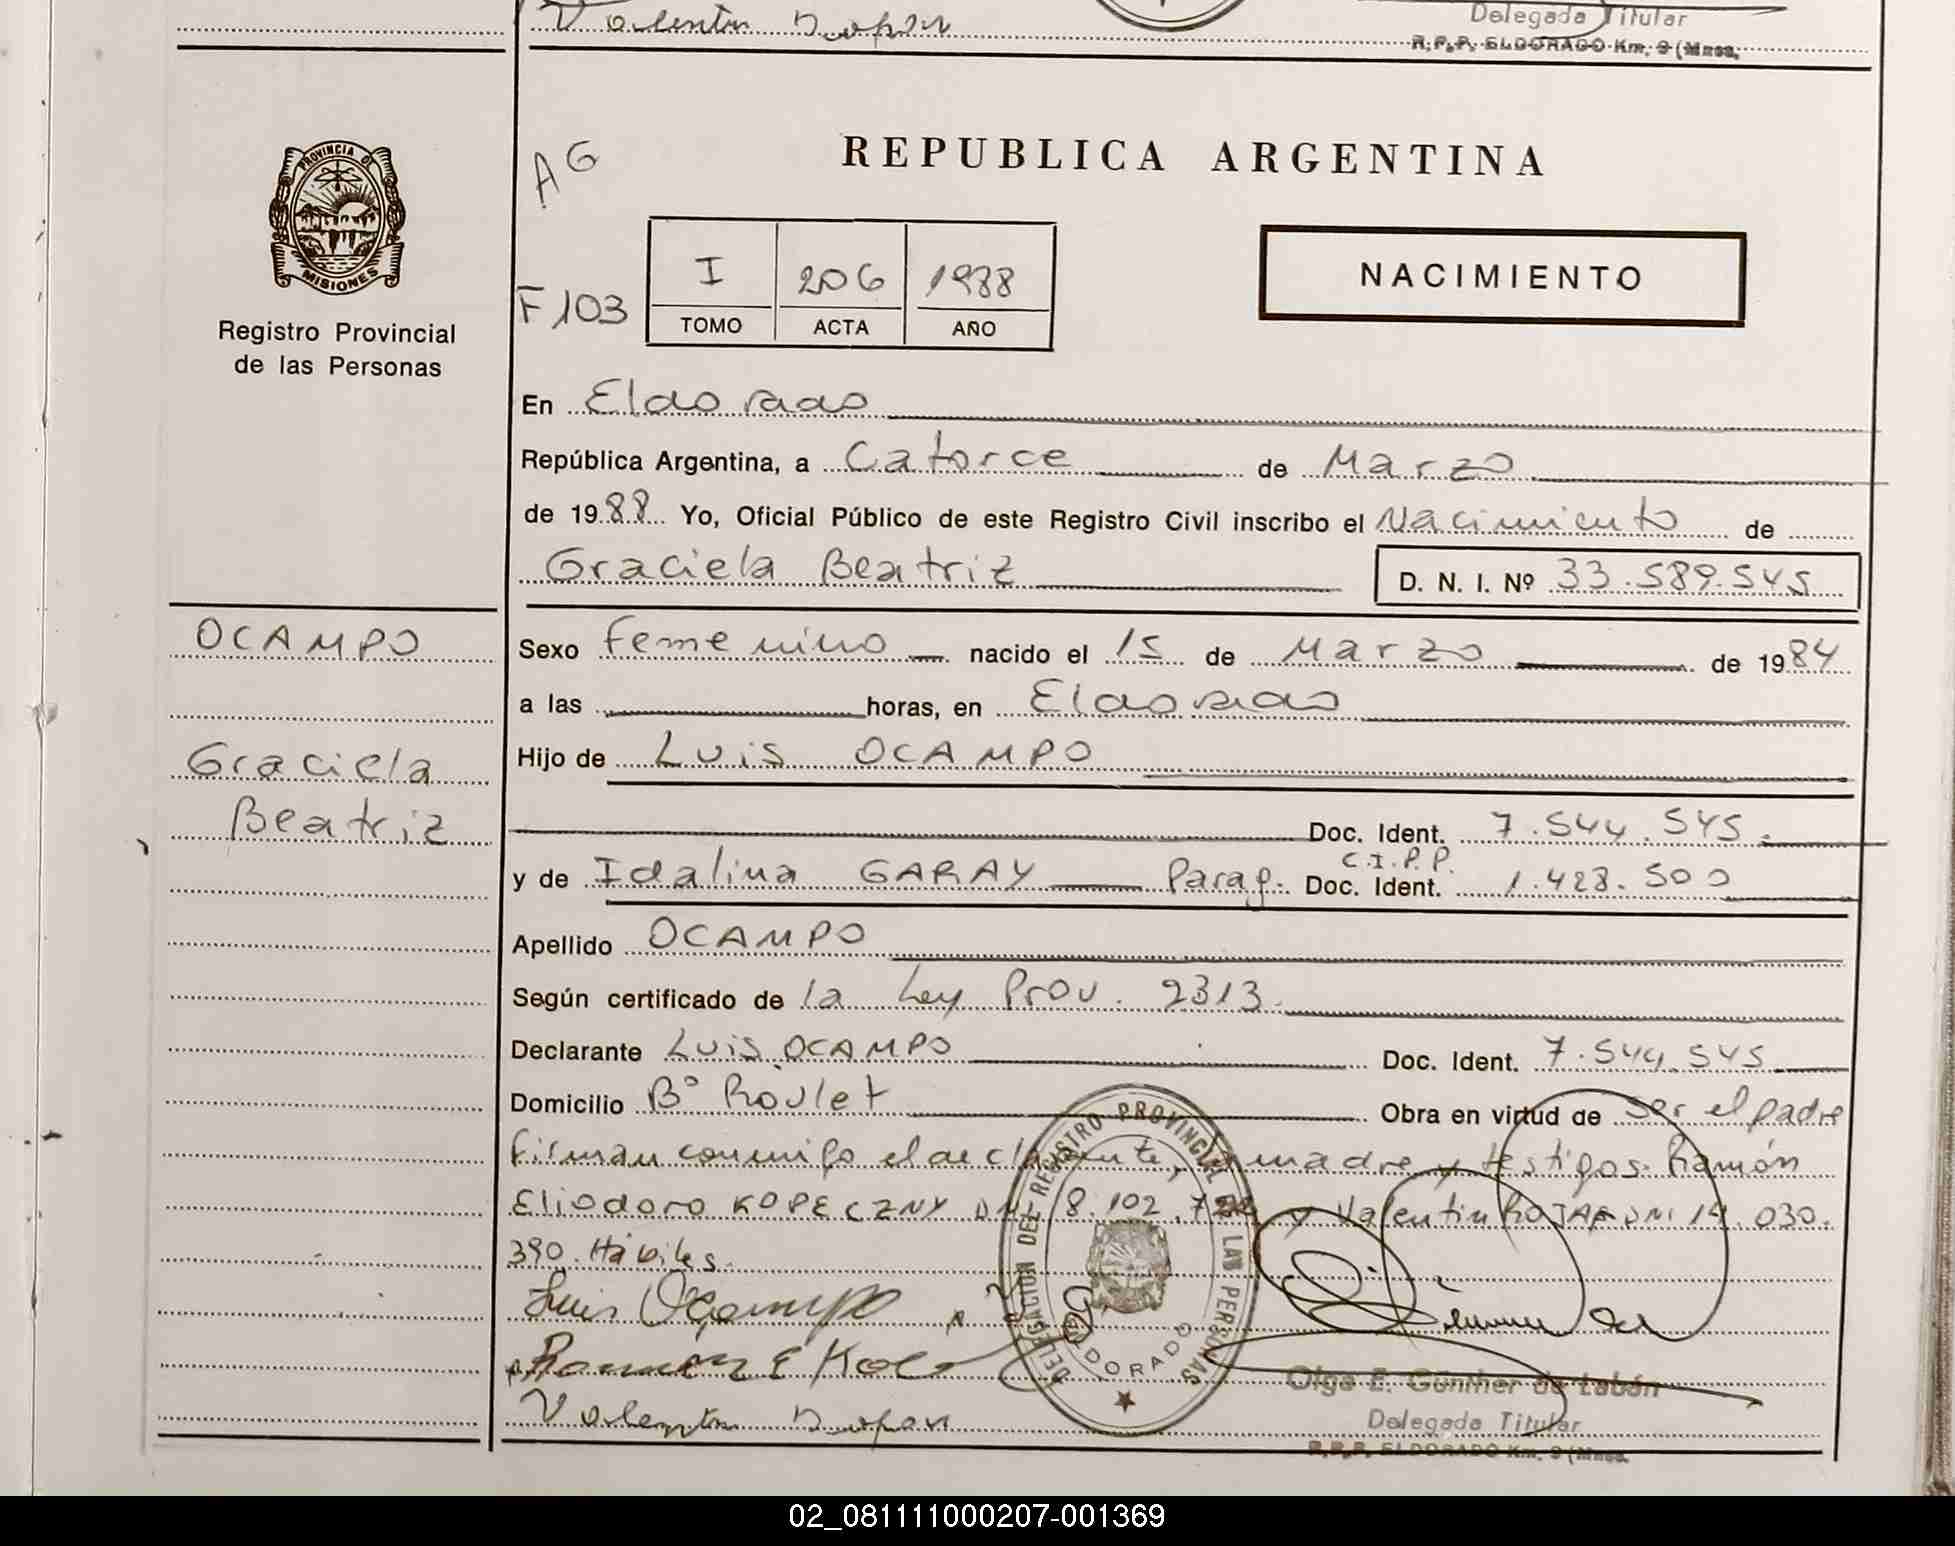 Valentin Rojas
Delegada Titular
R.P.P. ELDORADO Km. 9 (Mnes.
PROVINCIA DE
MISIONES
Registro Provincial
de las Personas
AG
REPUBLICA ARGENTINA
F 103
I 206 1988
TOMO ACTA AÑO
NACIMIENTO
En Eldorado
República Argentina, a Catorce de Marzo
de 1988 Yo, Oficial Público de este Registro Civil inscribo el Nacimiento de
Graciela Beatriz D. N. I. Nº 33.589.545
OCAMPO
Graciela
Beatriz
Sexo Femenino nacido el 15 de Marzo de 1984
a las horas, en Eldorado
Hijo de Luis OCAMPO
Doc. Ident. 7.544.545.
y de Idalina GARAY Parag. C.I.P.P. Doc. Ident. 1.428.500
Apellido OCAMPO
Según certificado de la Ley Prov. 2313.
Declarante Luis OCAMPO Doc. Ident. 7.544.545
Domicilio Bº Roulet Obra en virtud de ser el padre
Firman conmigo el declarante, madre y testigos Ramón
Eliodoro KOPECZNY DNI 8.102. y Valentin ROJAS DNI 14.030.
390. Hábiles.
Luis Ocampo
Ramon E
Valentin Rojas
DELEGACION DEL REGISTRO PROVINCIAL DE LAS PERSONAS
ELDORADO
Olga E. Günther de Labán
Delegada Titular
R.P.P. ELDORADO Km. 9 (Mnes.
02_081111000207-001369